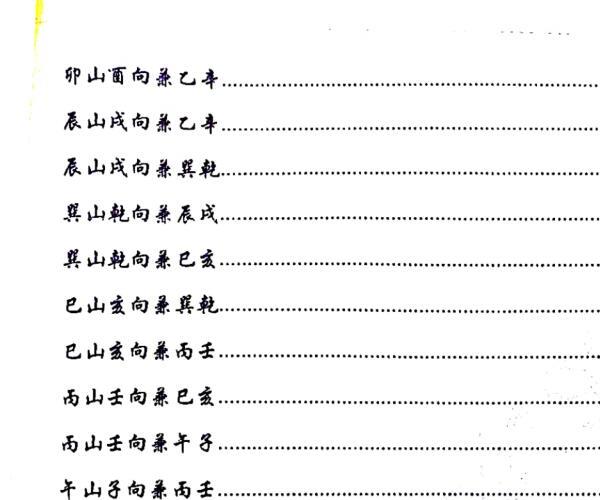 卯山酉向兼乙辛
辰山戌向兼乙辛
辰山戌向兼巽乾
巽山乾向兼辰戌
巽山乾向兼巳亥
巳山亥向兼巽乾
巳山亥向兼丙壬
丙山壬向兼巳亥
丙山壬向兼午子
午山子向兼丙壬